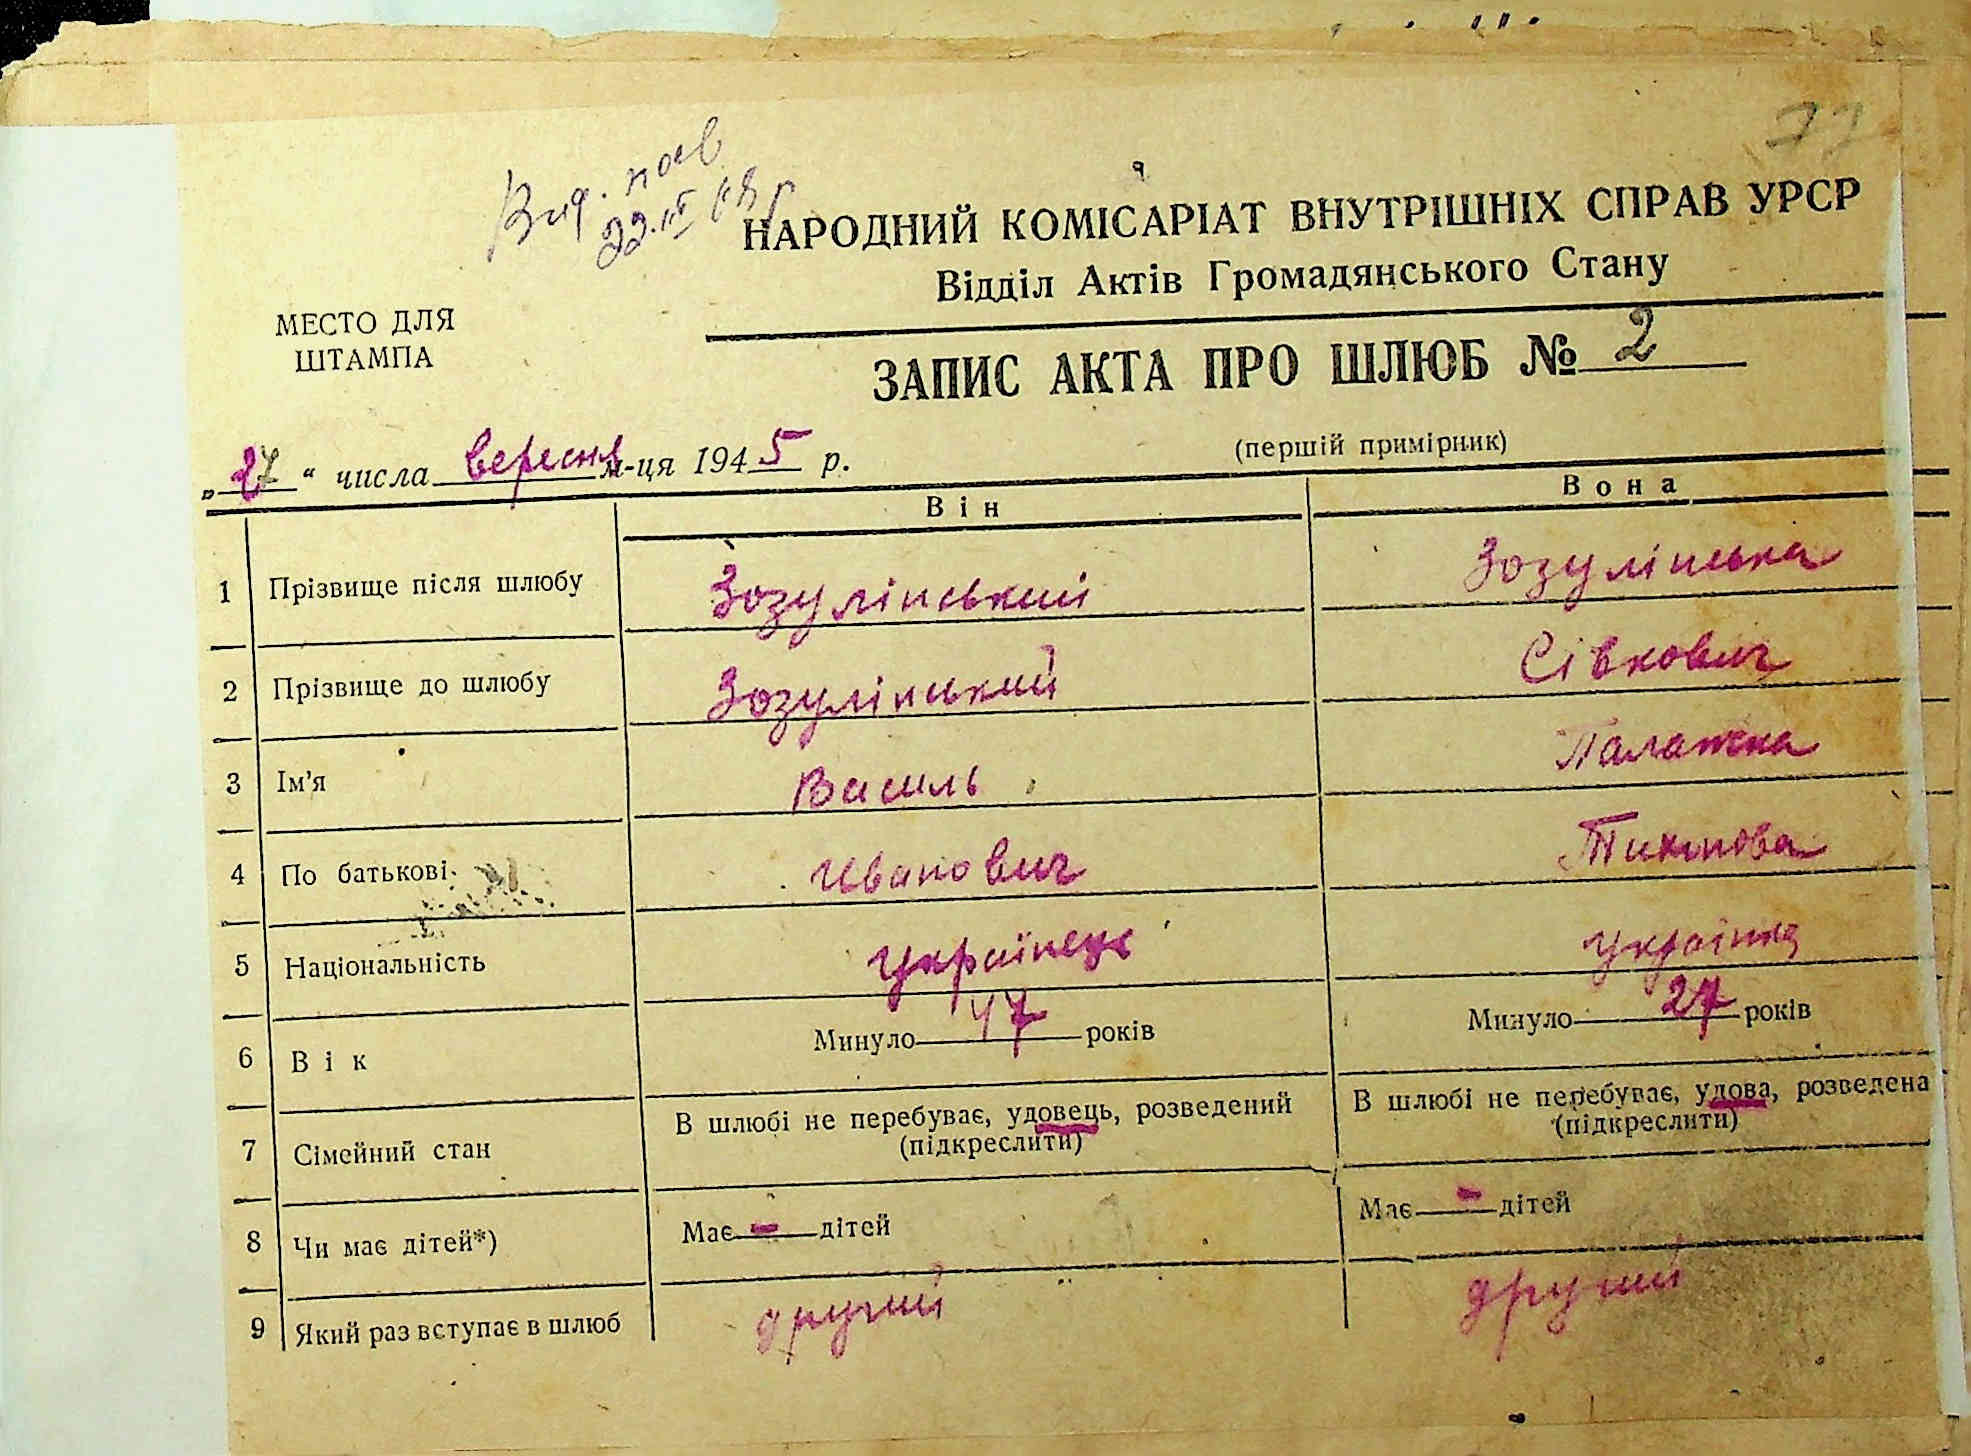 77
Вид. пов
22.VI 68 р
НАРОДНИЙ КОМІСАРІАТ ВНУТРІШНІХ СПРАВ УРСР
Відділ Актів Громадянського Стану
МЕСТО ДЛЯ
ШТАМПА
ЗАПИС АКТА ПРО ШЛЮБ № 2
„27“ числа вересня м-ця 1945 р.
(першій примірник)
Він Вона
1 Прізвище після шлюбу Зозулінський Зозулінська
2 Прізвище до шлюбу Зозулінський Сівкович
3 Ім'я Василь Палажка
4 По батькові Иванович Тихонова
5 Національність Українець Українка
6 Вік Минуло 47 років Минуло 27 років
7 Сімейний стан В шлюбі не перебуває, удовець, розведений В шлюбі не перебуває, удова, розведена
(підкреслити) (підкреслити)
8 Чи має дітей*) Має - дітей Має - дітей
9 Який раз вступає в шлюб другий другий